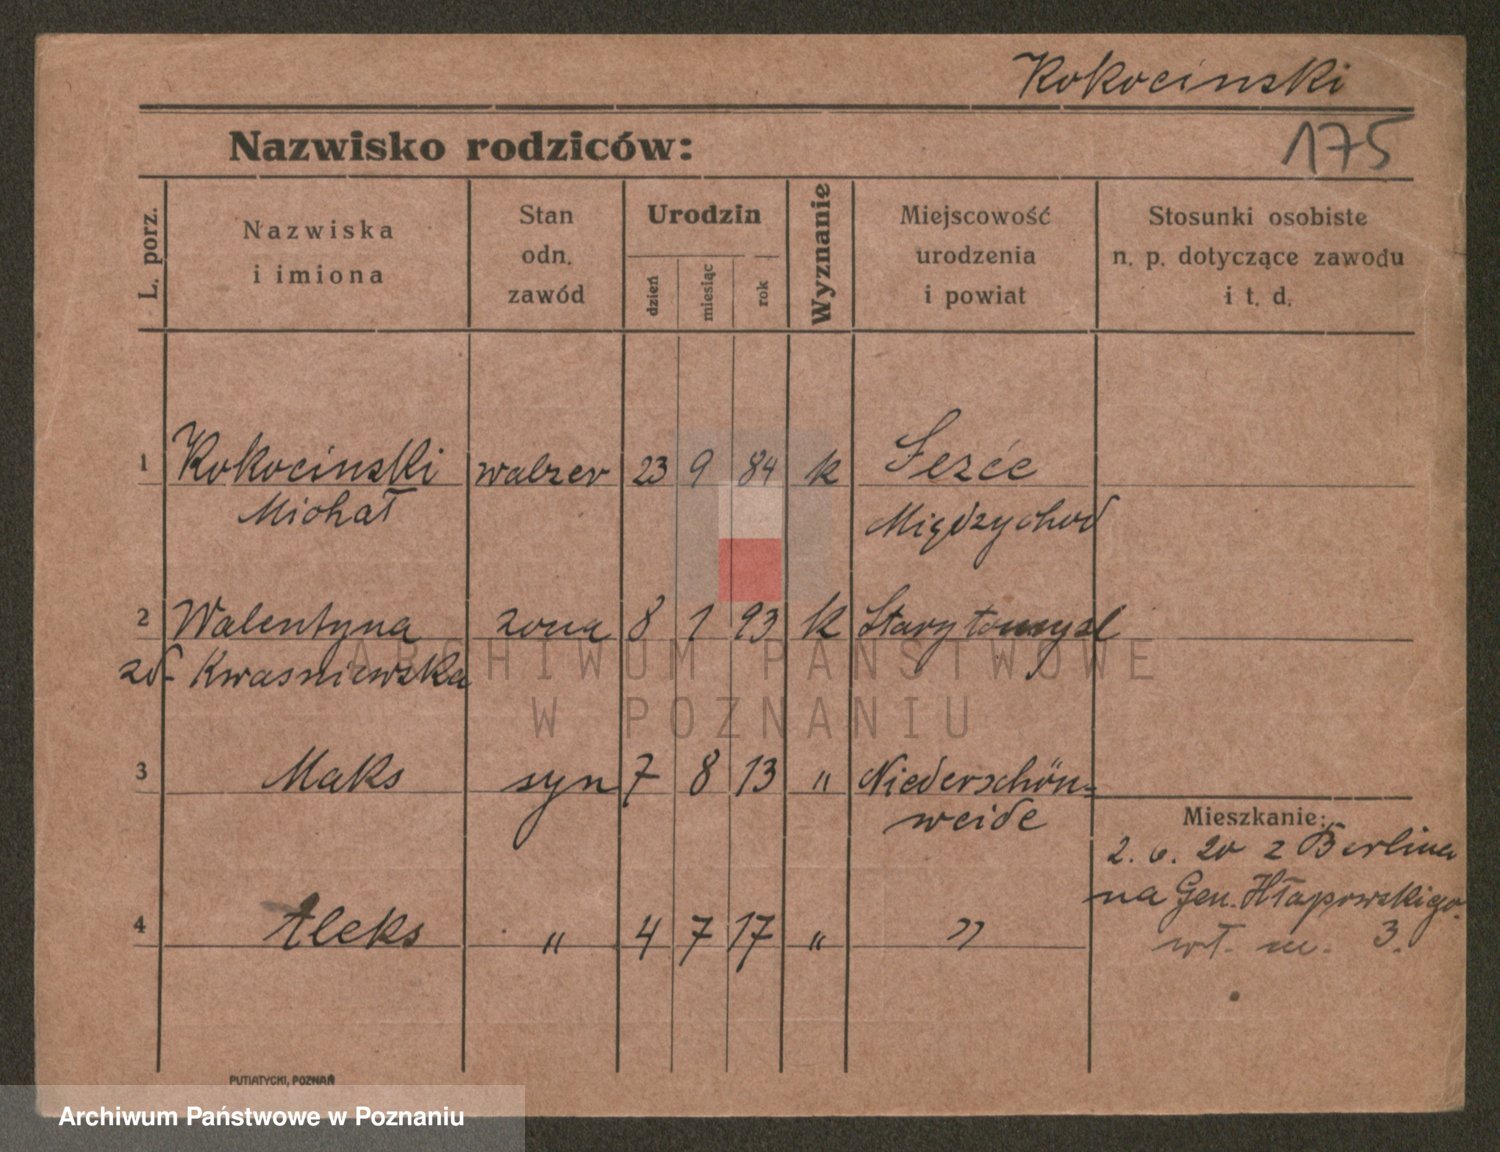 Kokocinski
175
Nazwisko rodziców:
L. porz.
Nazwiska
i imiona
Stan
odn.
zawód
Urodzin
dzień
miesiąc
rok
Wyznanie
Miejscowość
urodzenia
i powiat
Stosunki osobiste
n. p. dotyczące zawodu
i t. d.
1 Kokocinski walzer 23 9 84 k
Michał Międzychod
2 Walentyna zona 8 1 93 k Stary tomysl
zd. Kwasniewska
3 Maks syn 7 8 13 " Niederschön=
weide
Mieszkanie:
2. 6. 20 z Berlina
na Gen. Hłapowskiego
4 Aleks " 4 7 17 " "
wł. m. 3.
ARCHIWUM PAŃSTWOWE
W POZNANIU
PUTIATYCKI, POZNAŃ
Archiwum Państwowe w Poznaniu